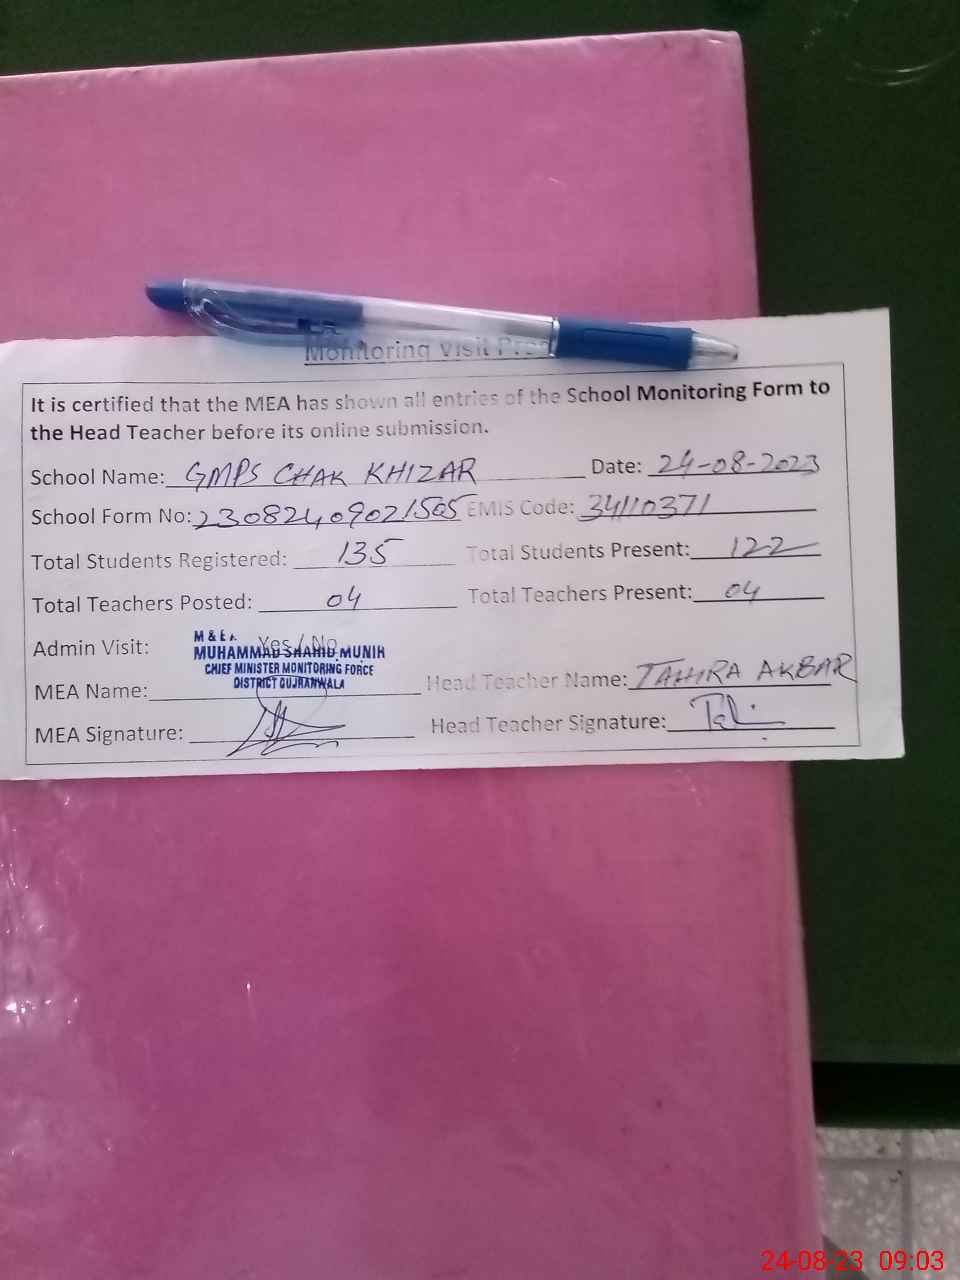 Monitoring Visit
It is certified that the MEA has shown all entries of the School Monitoring Form to
the Head Teacher before its online submission.
School Name: GMPS CHAK KHIZAR Date: 24-08-2023
School Form No: 23082409021505 EMIS Code: 34110371
Total Students Registered: 135 Total Students Present: 122
Total Teachers Posted: 04 Total Teachers Present: 04
Admin Visit: Yes / No
M & E A
MUHAMMAD SHAHID MUNIR
CHIEF MINISTER MONITORING FORCE
DISTRICT GUJRANWALA
MEA Name: Head Teacher Name: TAHIRA AKBAR
MEA Signature: Head Teacher Signature:
24-08-23 09:03